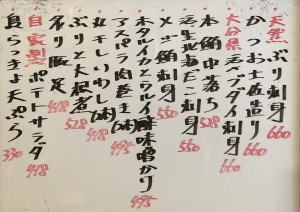 天然 ぶり刺身 660
かつお土佐造り 660
大分県 えべダイ刺身 660
本鮪中落ち 528
えび 北海だこ刺身 550
メカ鮪刺身 550
ホタルイカとワルイカ酢味噌かけ 495
アスパラ肉巻玉(2本) 495
丸干しいわし(2本) 418
ぶりと大根煮 528
吊り豚足 418
自家製 ポテトサラダ 418
島らっきょ天ぷら 330